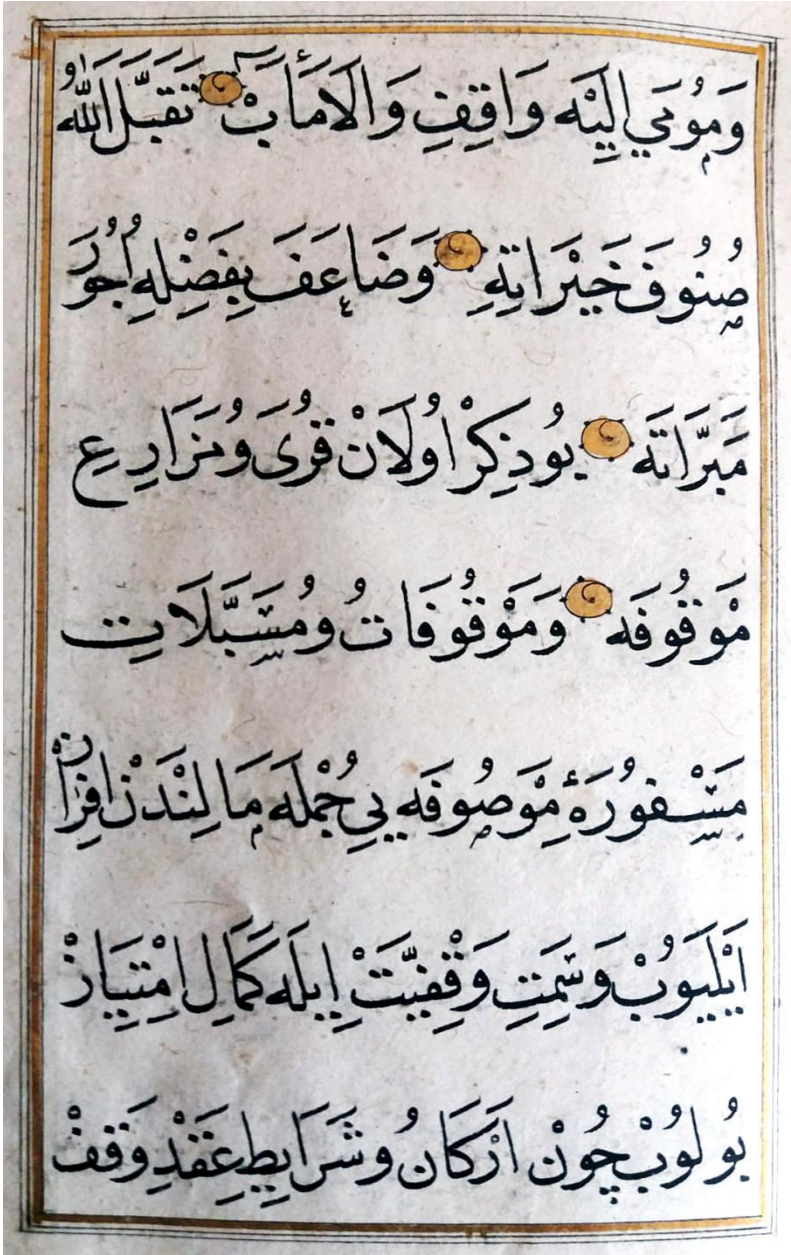 وَمُومَي اِلَيْه وَاقِفِ وَالَامَأَبْ تَقَبَّلَ اللّٰهُ
صُنُوفَ خَيْرَاتِهِ وَضَاعَفَ بِفَضْلِهِ اُجُورَ
مَبَرَّاتَه بُو ذِكِرْ اُولَانْ قُرَى وُمَزَارِعِ
مَوْقُوفَه وَمَوْقُوفَاتُ ومُسَبَّلَاتِ
مَسْفُورَهٔ مَوْصُوفَه يِي جُمْلَه مَالِنْدَنْ اِفْرَازْ
اَيْلَيُوبْ وَسِمَتِ وَقْفِيَّتْ اِيلَه كَمَالِ امْتِيَازْ
بُولُوبْ چُونْ اَرْكَانُ وشَرَايِطِ عَقْدِ وَقْفْ